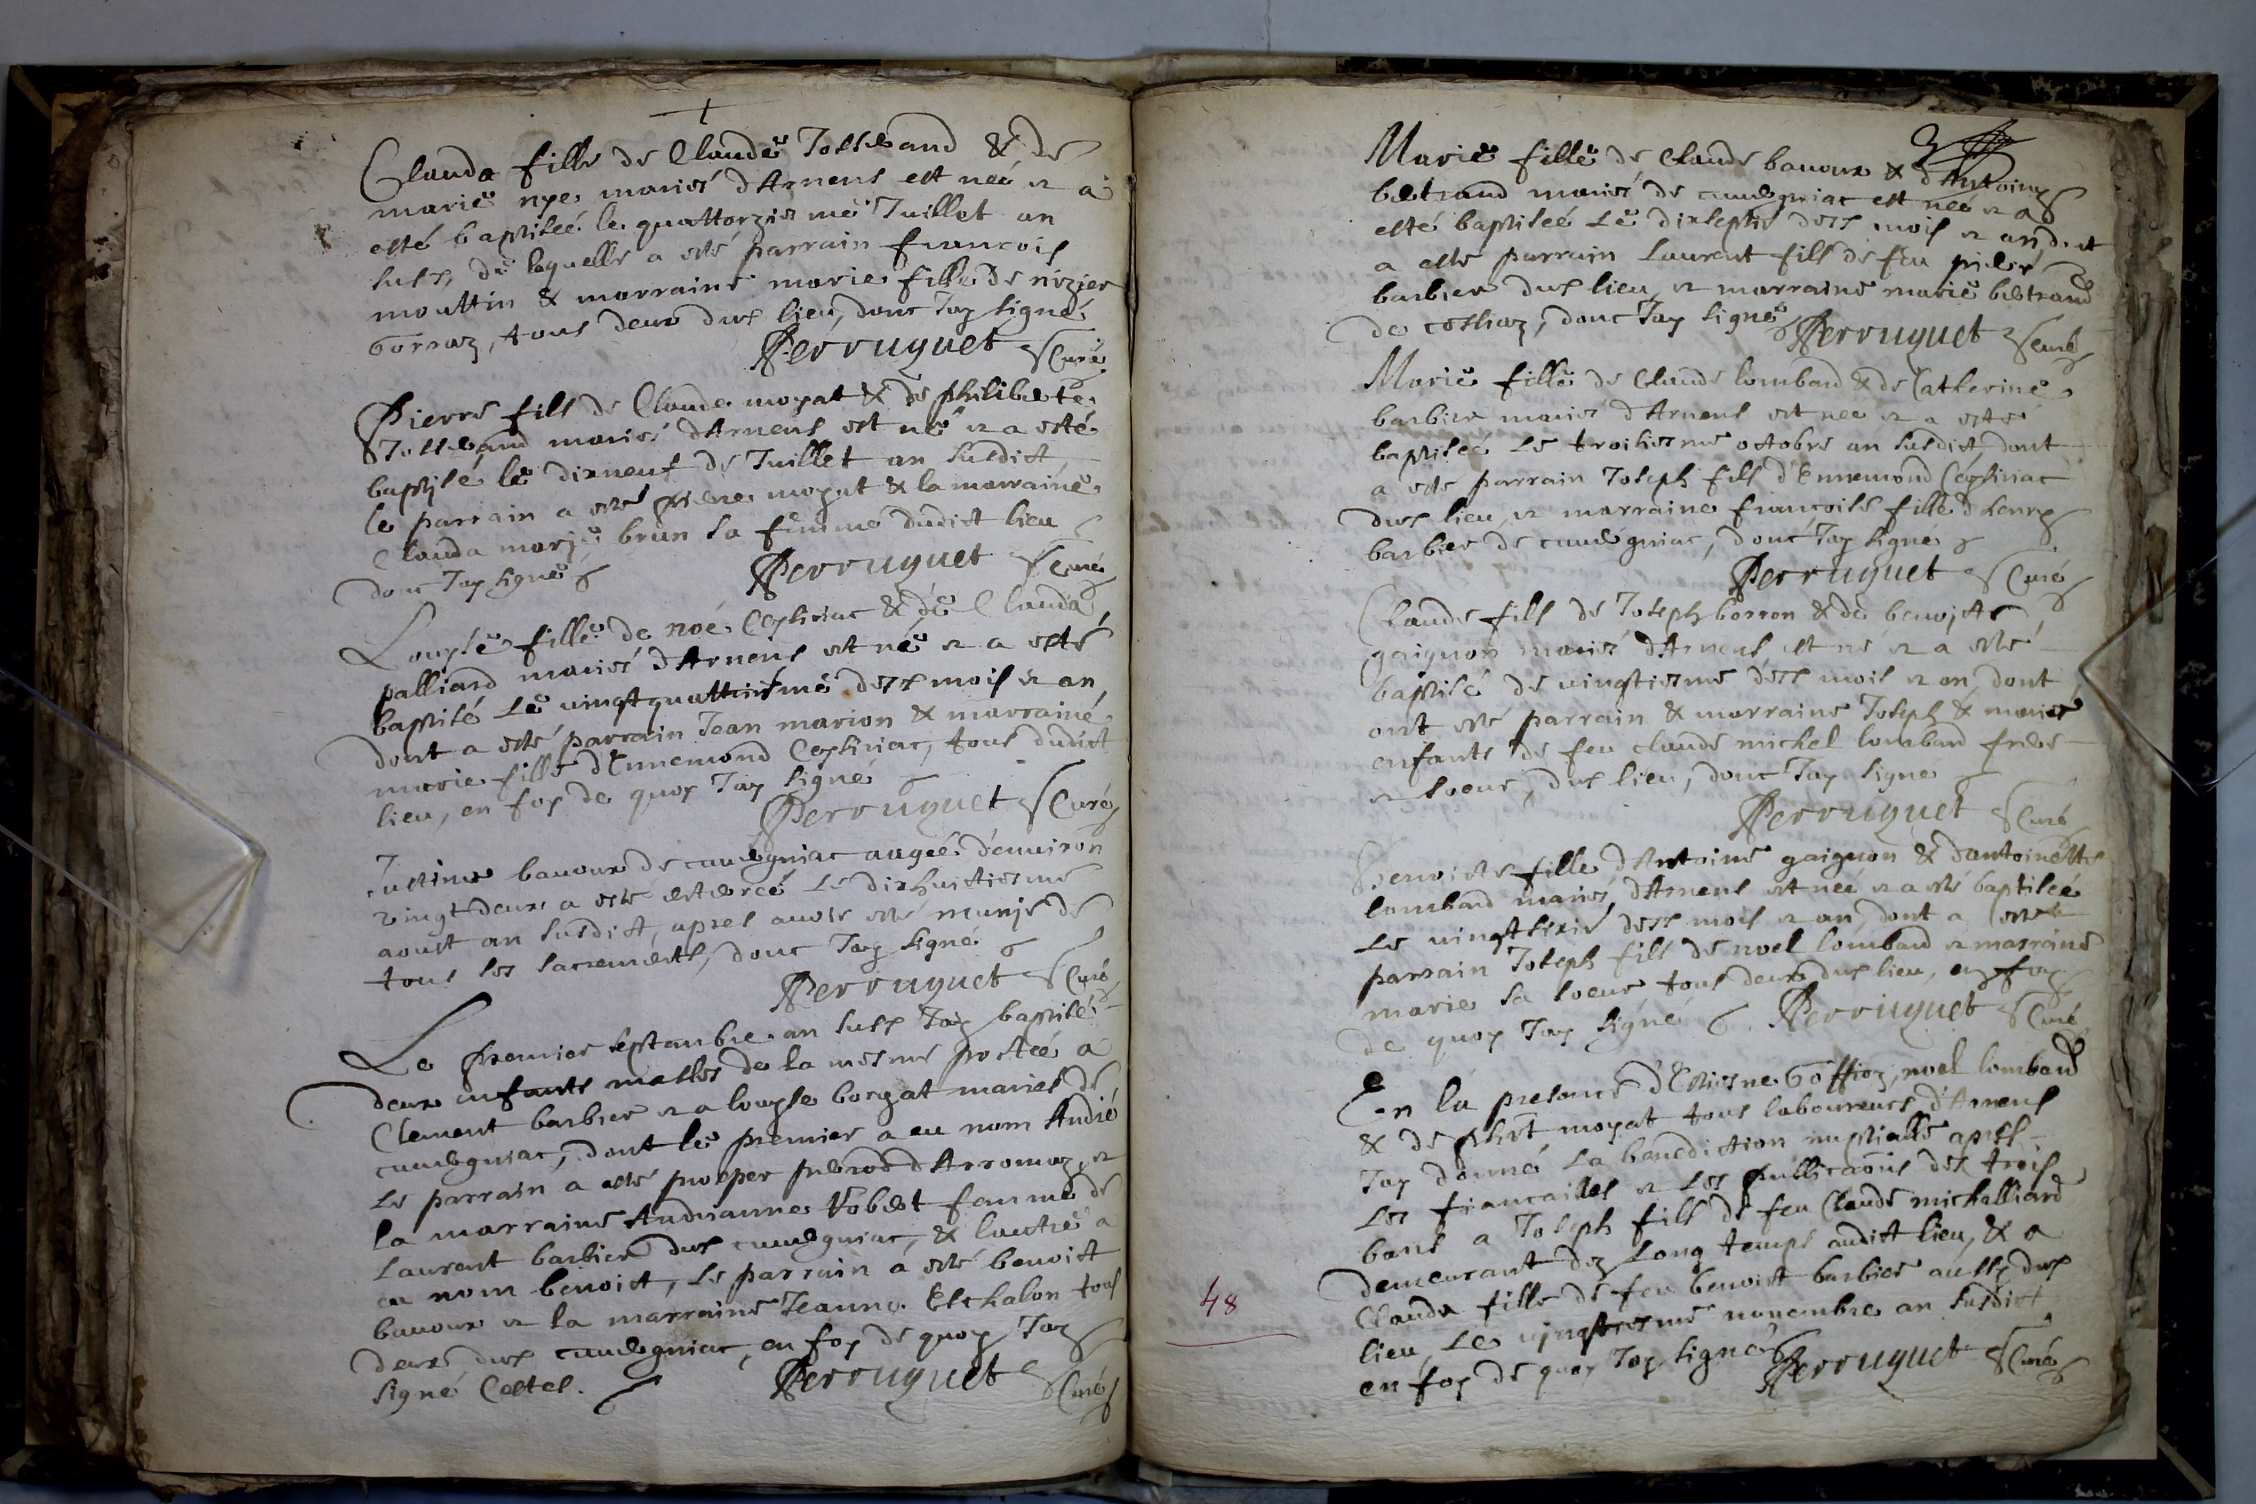 Clauda fille de Claude Josserand & de
marie nye, mariés d'Arnens est neé et a
esté baptiseé le quattorziesme Juillet an
susd, de laquelle a esté parrain francois
mouttin & marraine marie fille de nizier
Gorraz, tous deux dud lieu, donc Jay signé
Perruquet Curé
Pierre fils de Claude moyat & de philiberte
Josserand mariés d'Arnens est né et a esté
baptisé le dixneuf de Juillet an susdict
le parrain a esté pierre moyat & la marraine
Clauda brun sa femme dudict lieu
donc Jay signé Perruquet Curé
Louyse fille de noé & de Clauda
palliard mariés d'Arnens est né et a esté
baptisé Le vingtquattriesme desd mois et an
dont a esté parrain Jean marion & marraine
marie fille d'Ennemond, tous dudict
lieu, en foy de quoy Jay signé
Perruquet Curé
Justine bavoux de cuvergniac aagée d'environ
vingt deux a esté enterreé Le dixhuictiesme
aoust an susdict, apres avoir esté munie de
tous les sacrements, donc Jay signé
Perruquet Curé
Le premier septembre an susd Jay baptisé
deux enfants masles de la mesme porteé a
Clement barbier et a louyse borgat mariés de
cuvergniac, dont le premier a eu nom André
Le parrain a esté prosper d'Arromaz, et
la marraine Andrianne femme de
Laurent barbier dud cuvergniac, & lautre a
eu nom benoict, Le parrain a esté benoict
bavoux et la marraine Jeanne Eschalon tous
deux dud cuvergniac, en foy de quoy Jay
signé Perruquet Curé
Marie fille de Claude bavoux & d'Antoine
bertrand mariés de cuvergniac est neé et a
esté baptiseé Le dixseptie desd mois et an dont
a esté parrain Laurent fils de feu pierre
barbier dud lieu, et marraine marie bertrand
de, donc Jay signé Perruquet Curé
Marie fille de Claude lombard & de Catherine
barbier mariés d'Arnens est neé et a esté
baptiseé Le troisiesme octobre an susdict, dont
a esté parrain Joseph fils d'Ennemond
dud lieu, et marraine francoise fille d henry
barbier de cuvergniac, donc Jay signé
Perruquet Curé
Claude fils de Joseph borron & de benoicte
gaignon mariés d'Arnens est né et a esté
baptisé de vingtiesme desd mois et an, dont
ont esté parrain & marraine Joseph & marie
enfants de feu claude michel lombard frere
et soeur, dud lieu, donc Jay signé
Perruquet Curé
Benoicte fille d'Antoine gaignon & d'antoinette
lombard mariés, d'Arnens est neé et a esté baptiseé
Le vingtsixie desd mois et an, dont a esté
parrain Joseph fils de noel lombard et marraine
marie sa soeur tous deux dud lieu, en foy
de quoy Jay signé Perruquet Curé
En la presence d'Estiesne Goffioz, noel lombard
& de phbt moyat tous laboureurs d'Arnens
Jay donné La benediction nuptialle apres
Les fiancailles et Les publicaons des trois
bans a Joseph fils de feu Claude michalliard
demeurant dez long temps audict lieu, & a
Clauda fille de feu benoict barbier aussy dud
lieu Le vingtiesme novembre an susdict
en foy de quoy Jay signé Perruquet Curé
48